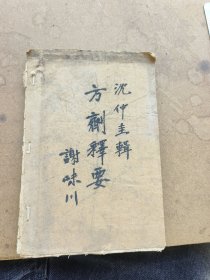 沈仲圭輯
方劑釋要
謝味川